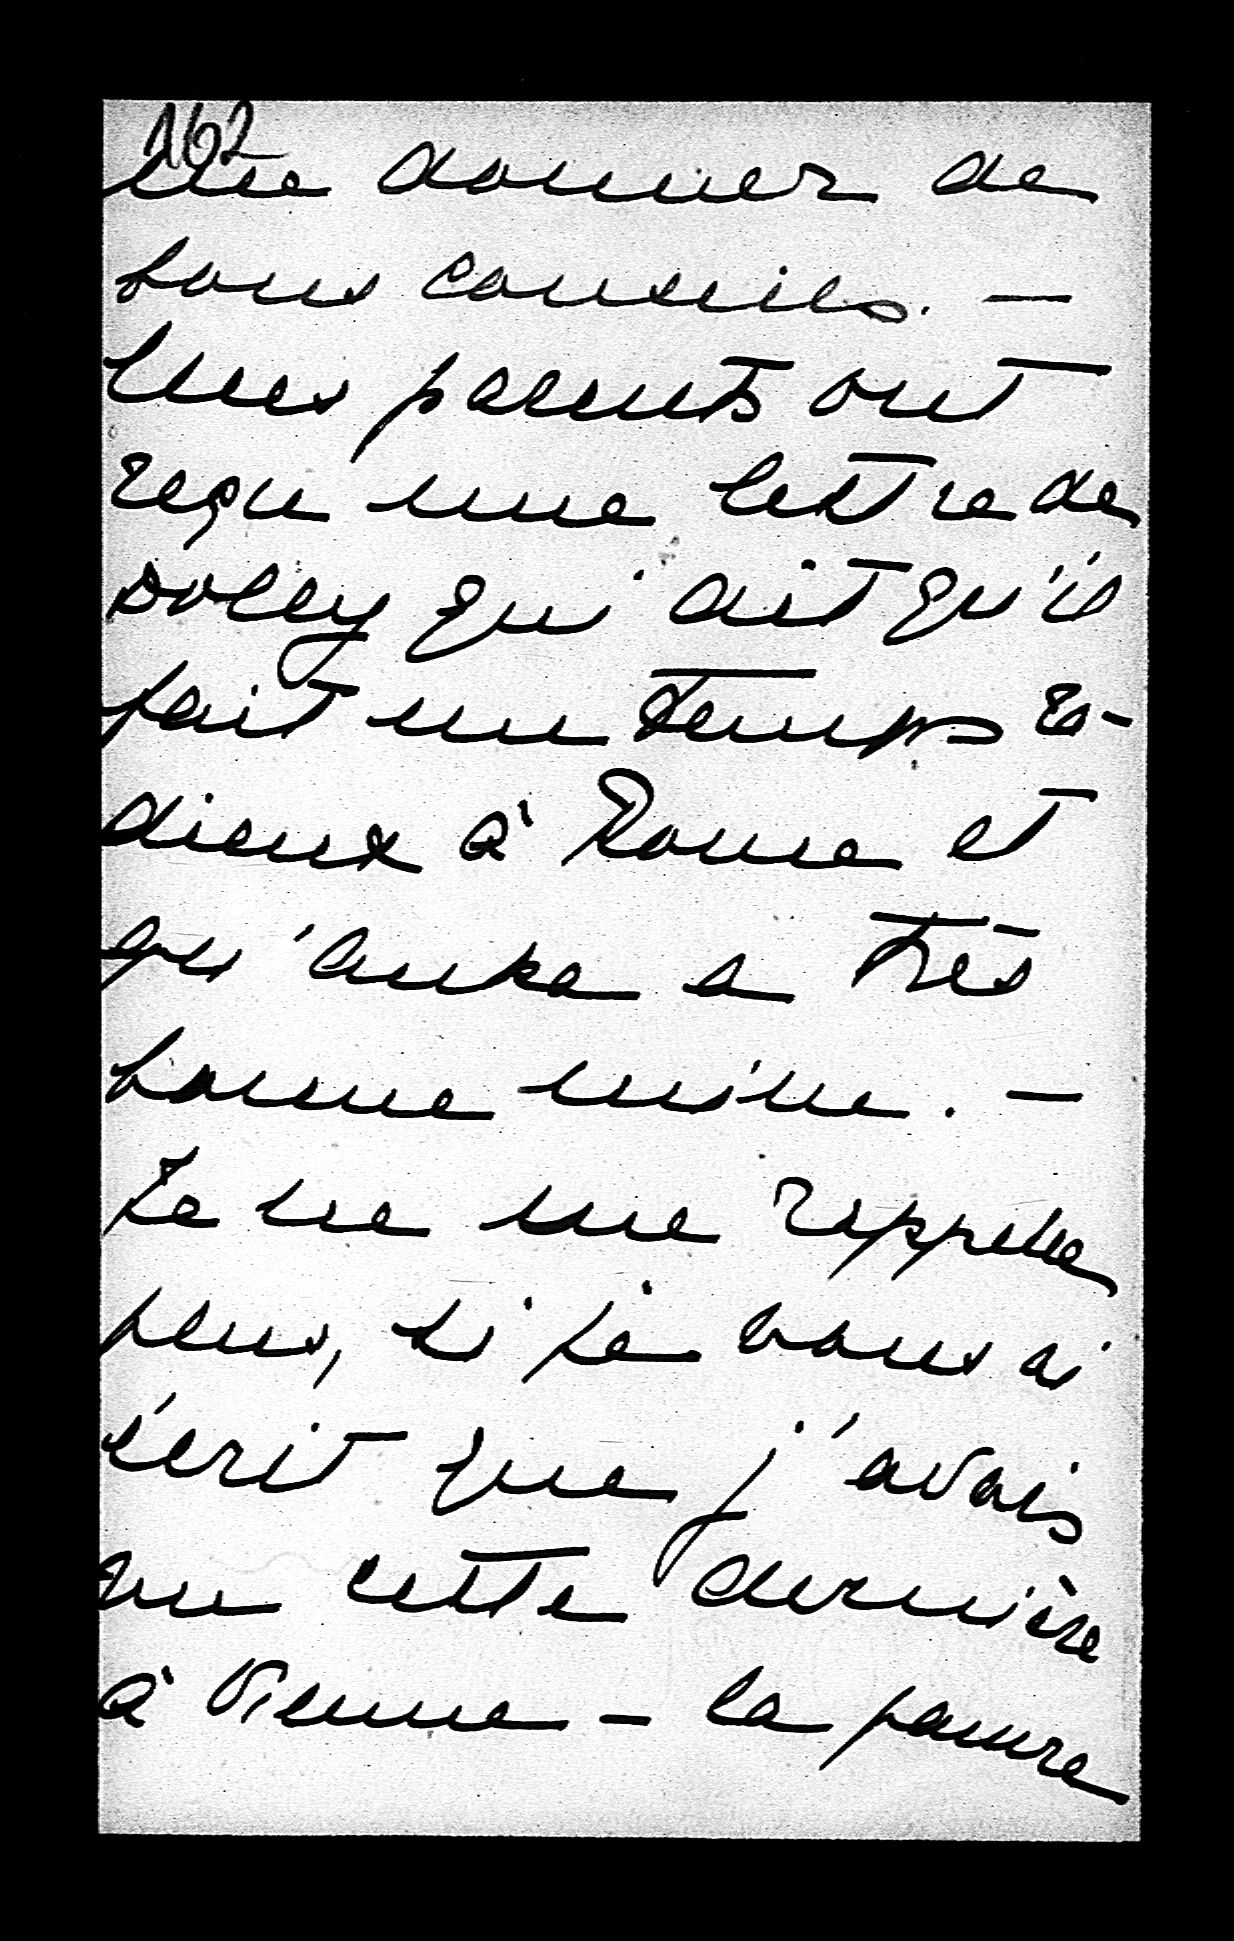 162
me donner de
bons conseils. —
Mes parents ont
reçu une lettre de
Dolly qui dit qu'il
fait un temps ra-
dieux à Rome et
qu'Anka a très
bonne mine. —
Je ne me rappelle
plus, si je vous ai
écrit que j'avais
vu cette dernière
à Vienne — la pauvre